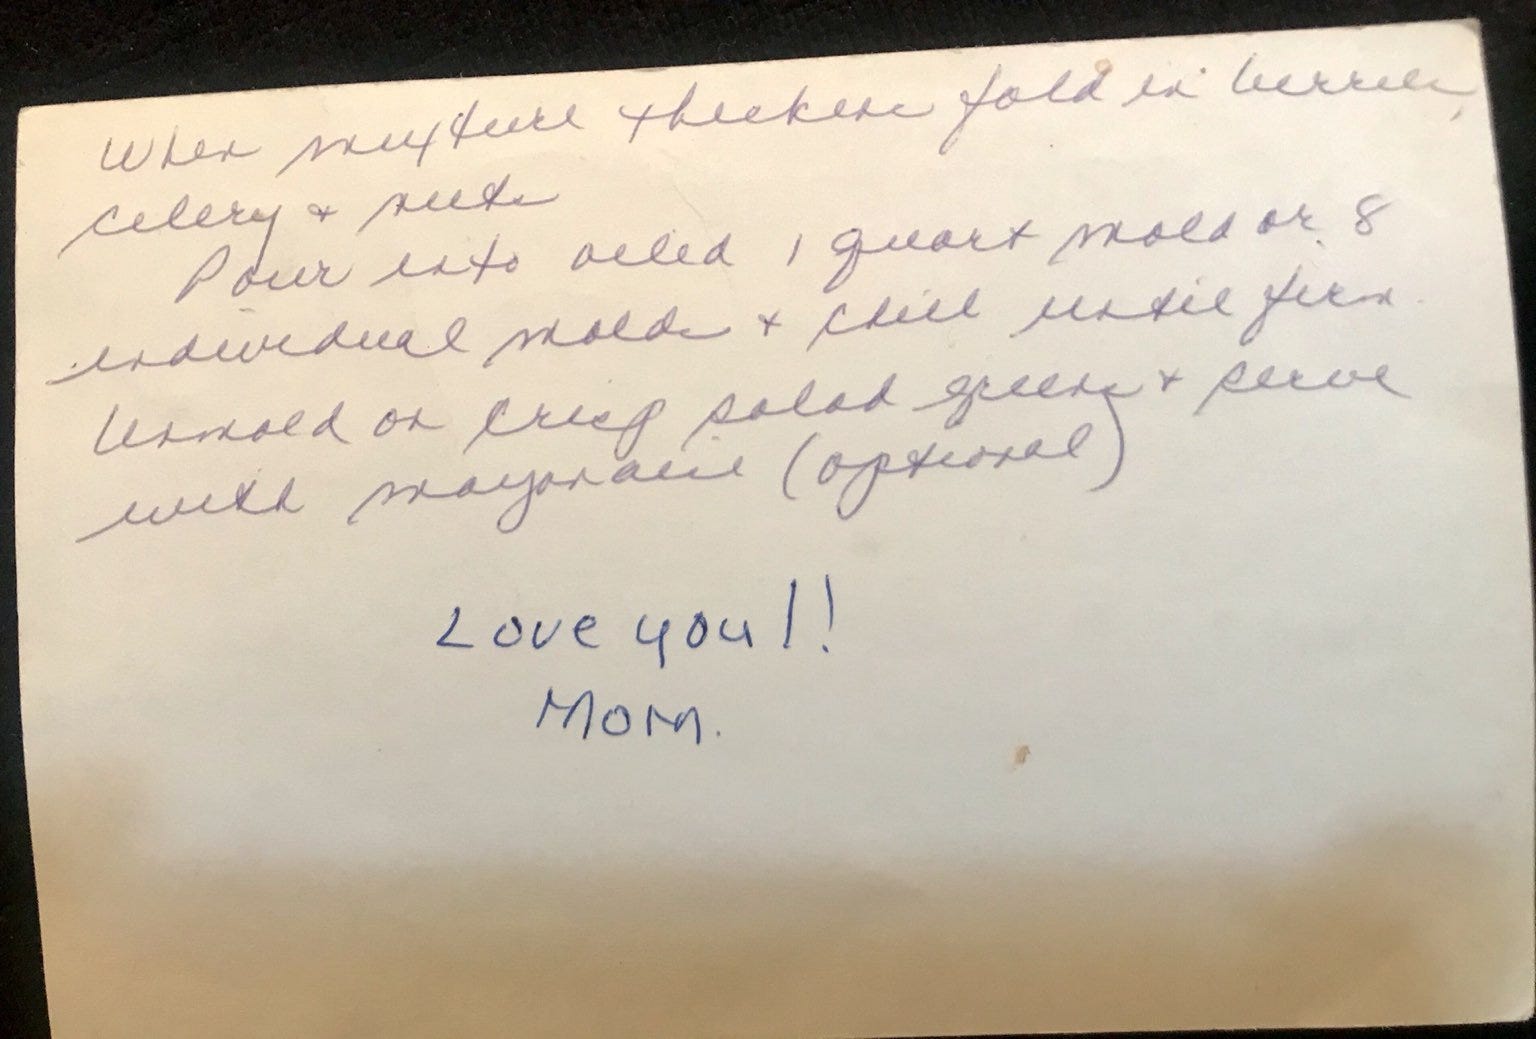 When mixture thickens fold in berries,
celery + nuts
Pour into oiled 1 quart mold or 8
individual molds + chill until firm.
Unmold on crisp salad greens + serve
with mayonaise (optional)
Love you!!
Mom.